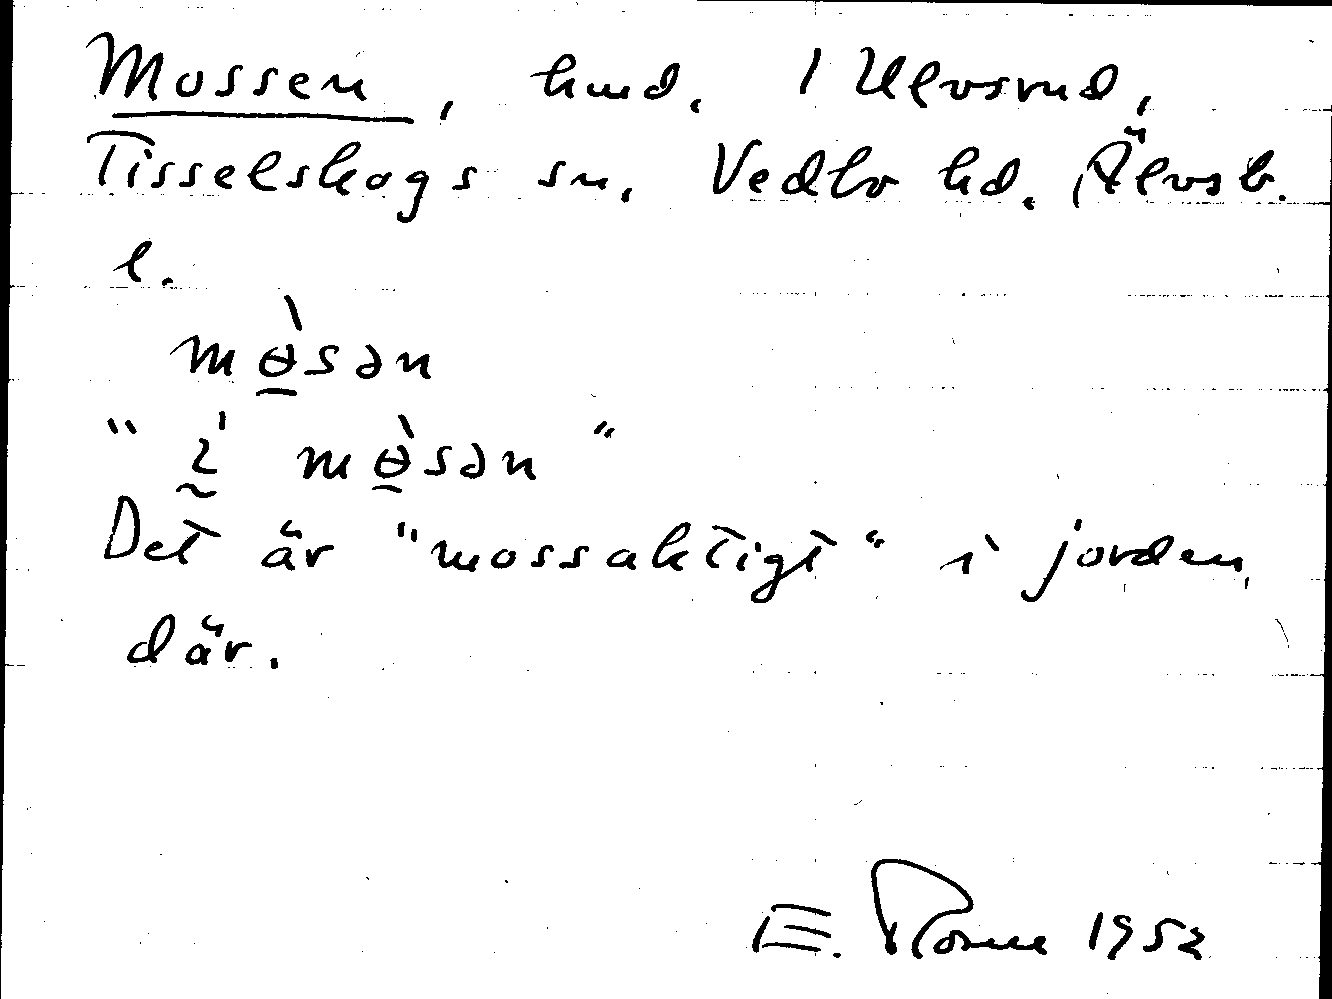 Mossen, hmd. 1 Ulvsrud,
Tisselskogs sn. Vedbo hd. Älvsb.
l.
mɵ̠̀sən
"ı̰̍ mɵ̠̀sən"
Det är "mossaktigt" i jorden
där.
E. 1952